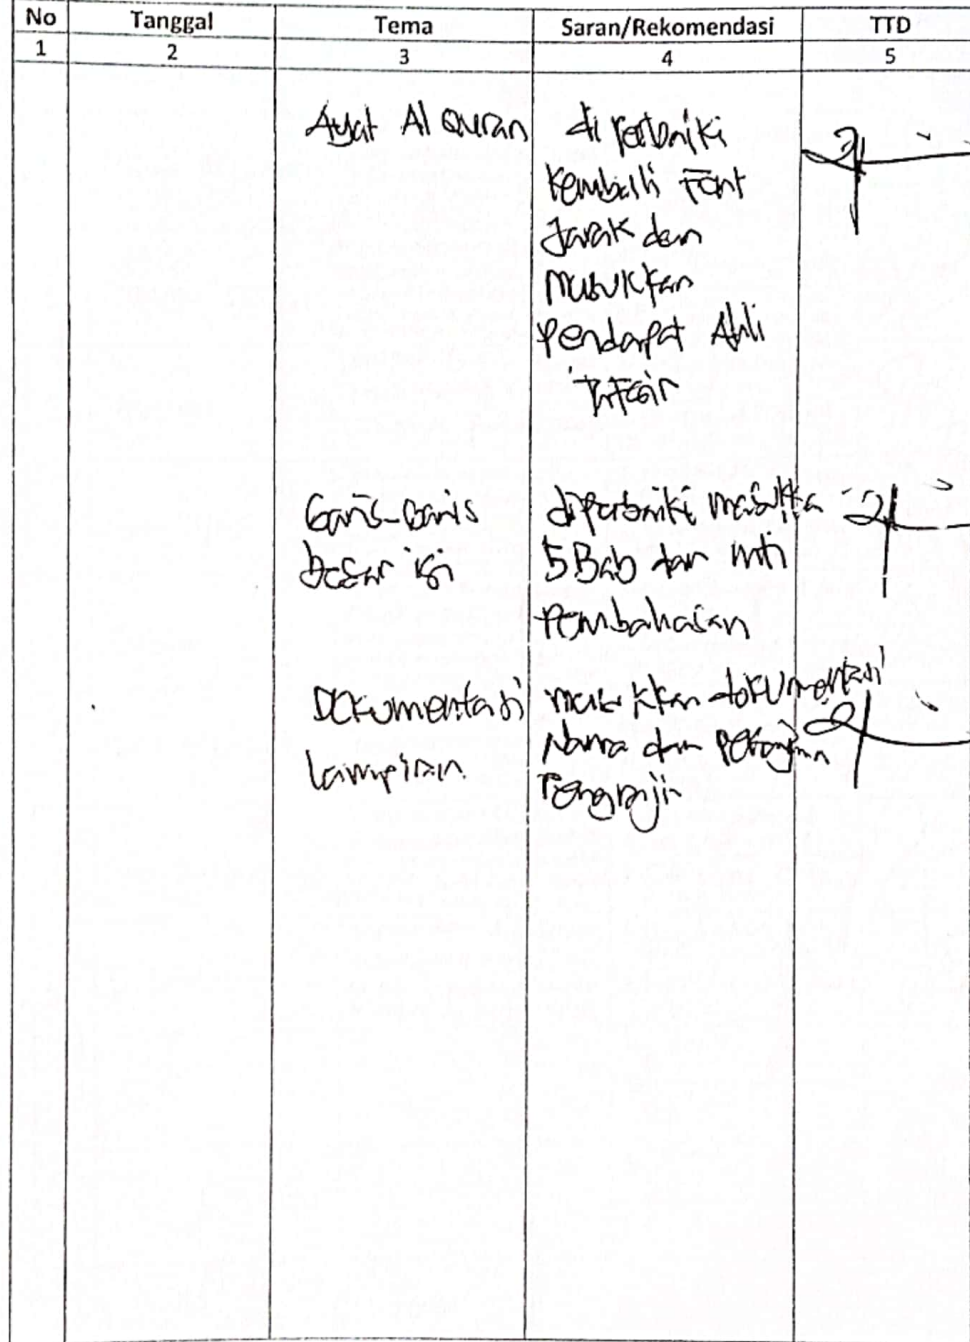 No Tanggal Tema Saran/Rekomendasi TTD
1 2 3 4 5
Ayat Al Quran di Perbaiki
kembali Font
Jarak dan
Masukkan
pendapat Ahli
Tafsir
Garis-Garis diperbaiki masukka
Besar isi 5 Bab dan inti
Pembahasan
Dokumentasi masukkan dokumentasi
Lampiran Nama dan
Pengrajin